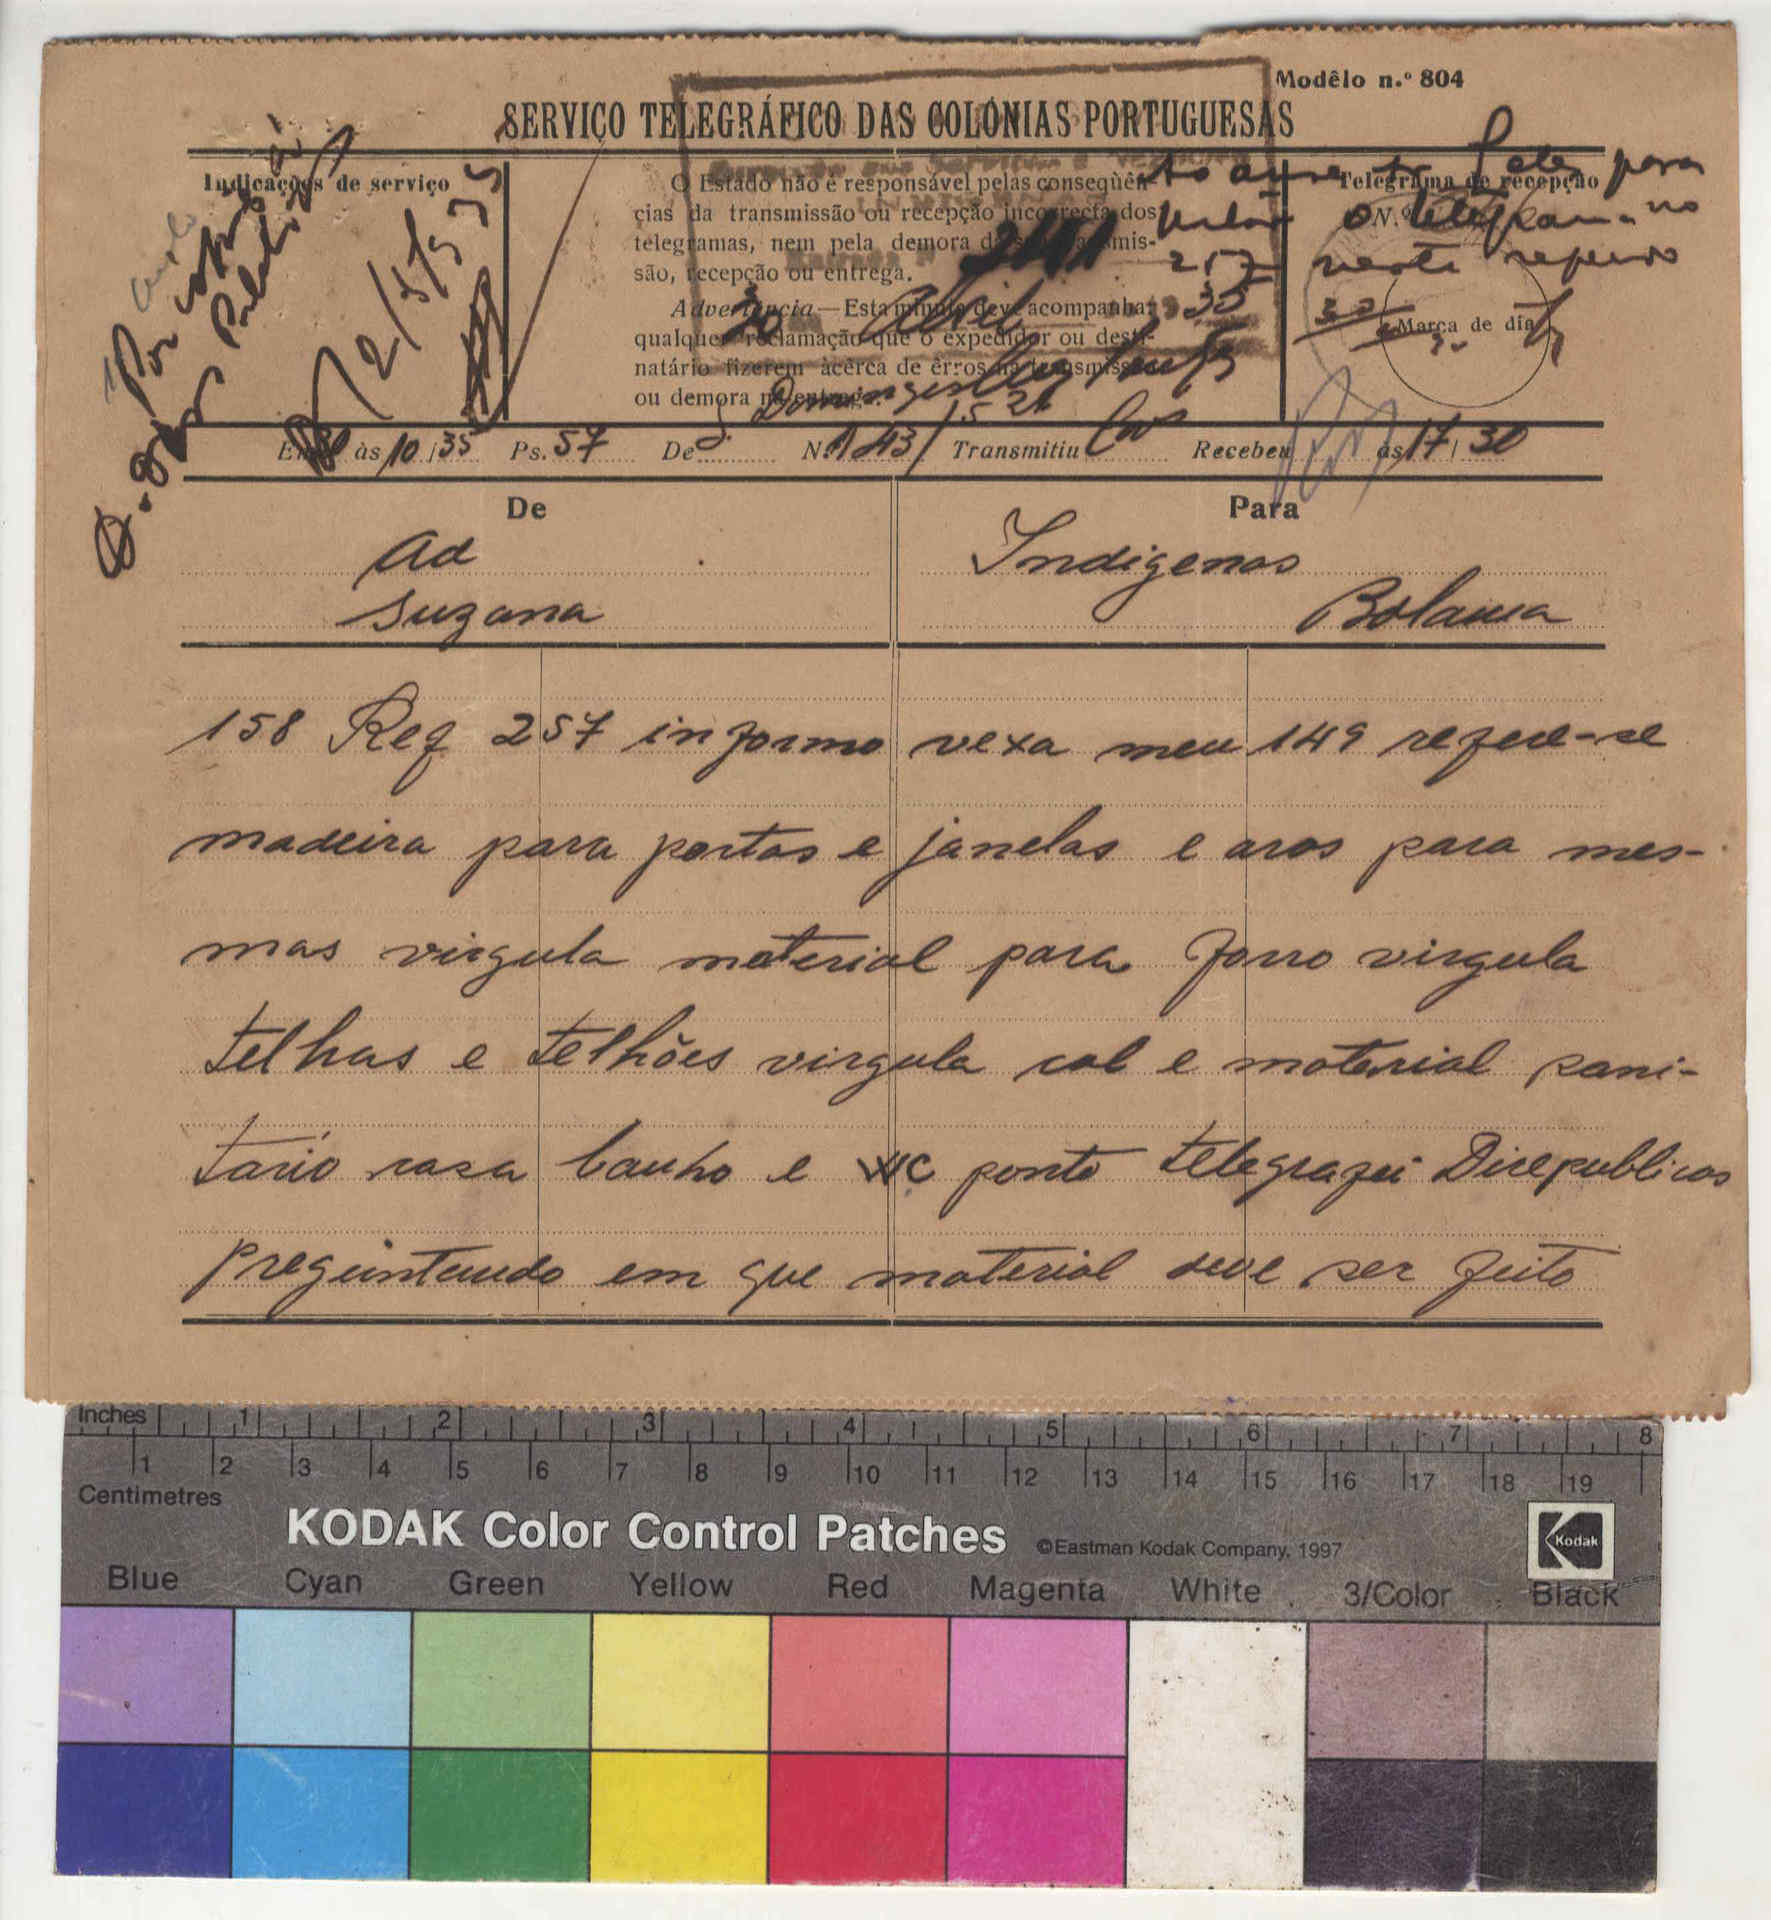 Modêlo n.º 804
SERVIÇO TELEGRÁFICO DAS COLÓNIAS PORTUGUESAS
Indicações de serviço
O Estado não é responsável pelas conseqüên-
cias da transmissão ou recepção incorrecta dos
telegramas, nem pela demora da sua transmis-
são, recepção ou entrega.
Advertência—Esta minuta deve acompanhar
qualquer reclamação que o expedidor ou desti-
natário fizerem àcêrca de êrros na transmissão
ou demora na entrega.
2141
20 Abril 35
Telegrama de recepção
N.º
para
o telegrama no
257
Marca de dia
2/5/935
às 10/35 Ps. 57 De S. Domingos N.º 143/ Transmitiu Recebeu às 17/30
De
Para
Ad
Suzana
Indigenas
Bolama
158 Ref 257 informo vexa meu 149 refere-se
madeira para portas e janelas e aros para mes-
mas virgula material para forro virgula
telhas e telhões virgula cal e material sani-
tario casa banho e WC ponto telegrafei Direpublicos
preguintando em que material deve ser feito
Inches 1 2 3 4 5 6 7 8
1 2 3 4 5 6 7 8 9 10 11 12 13 14 15 16 17 18 19
Centimetres
KODAK Color Control Patches ©Eastman Kodak Company, 1997
Kodak
Blue Cyan Green Yellow Red Magenta White 3/Color Black